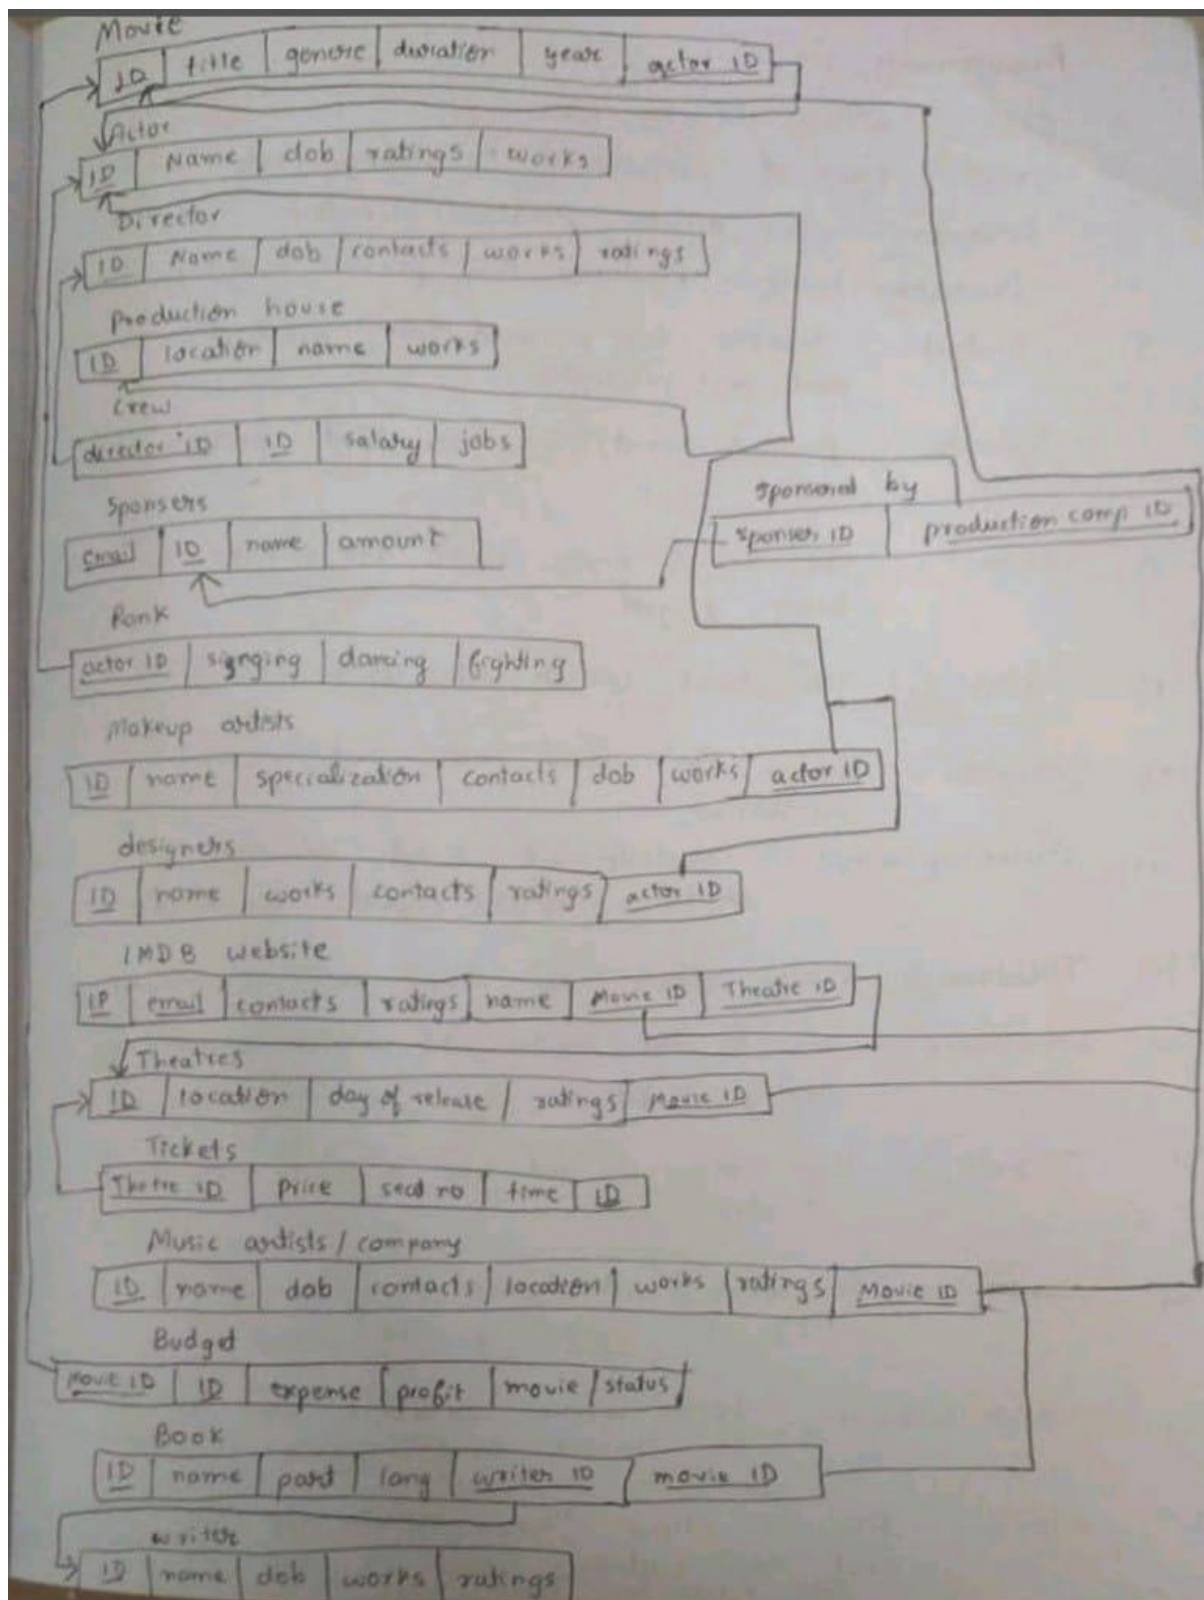 Movie
ID title genere duration year actor ID
Actor
ID Name dob ratings works
Director
ID Name dob contacts works ratings
Production house
ID location name works
Crew
director ID ID salary jobs
Sponsers
email ID name amount
sponsered by
sponser ID production comp ID
Rank
actor ID signging dancing fighting
Makeup artists
ID name specialization contacts dob works actor ID
designers
ID name works contacts ratings actor ID
IMDB website
ID email contacts ratings name Movie ID Theatre ID
Theatres
ID location day of release ratings Movie ID
Tickets
Theatre ID Price seat no time ID
Music artists / company
ID name dob contacts location works ratings Movie ID
Budget
Movie ID ID expense profit movie status
Book
ID name part lang writer ID movie ID
writer
ID name dob works ratings